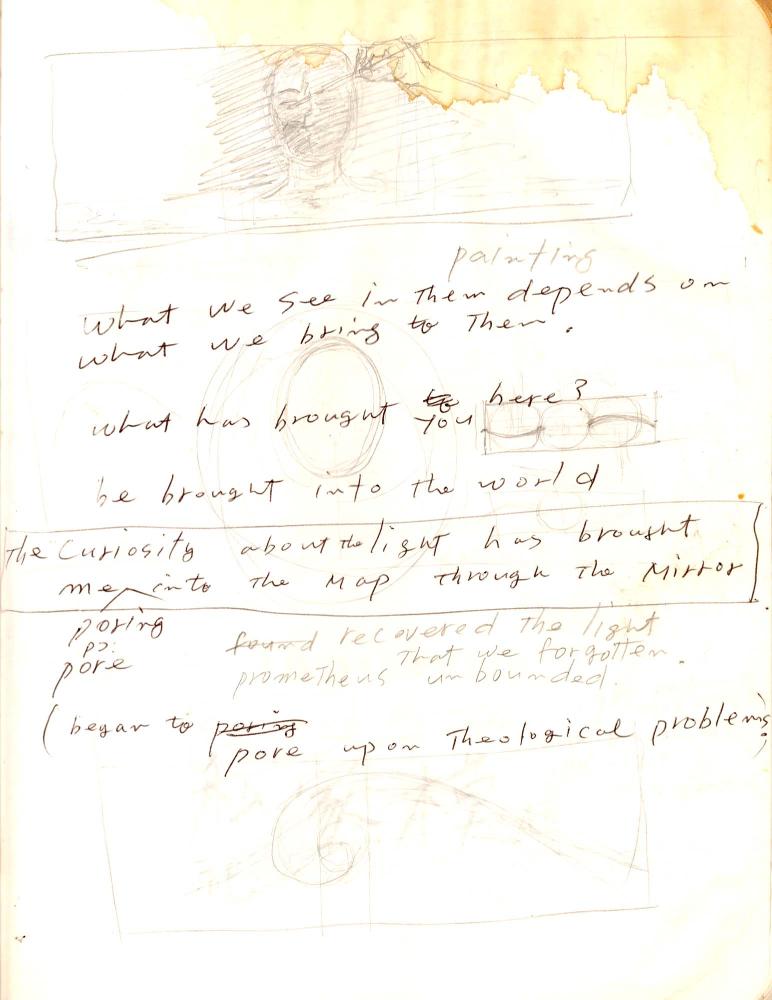 painting
what we see in them depends on
what we bring to them.
what has brought to here?
you
be brought into the world
The Curiosity about the light has brought
me into the map through the mirror
poring
pɔ:
pore
found recovered the light
that we forgotten.
prometheus unbounded.
(began to poring
pore upon theological problems;)